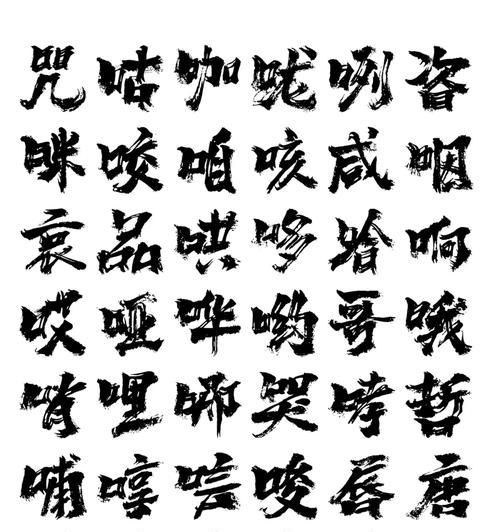 咒咕咖咙咧咨
咪咬咱咳咸咽
哀品哄哆哈响
哎哑哗哟哥哦
哨哩哪哭哮哲
哺哼唁唆唇唐